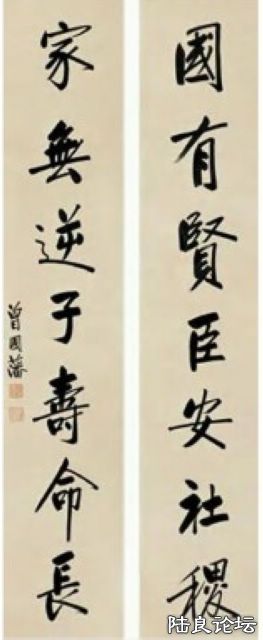 國有賢臣安社稷
家無逆子壽命長
曾國藩
陆良论坛